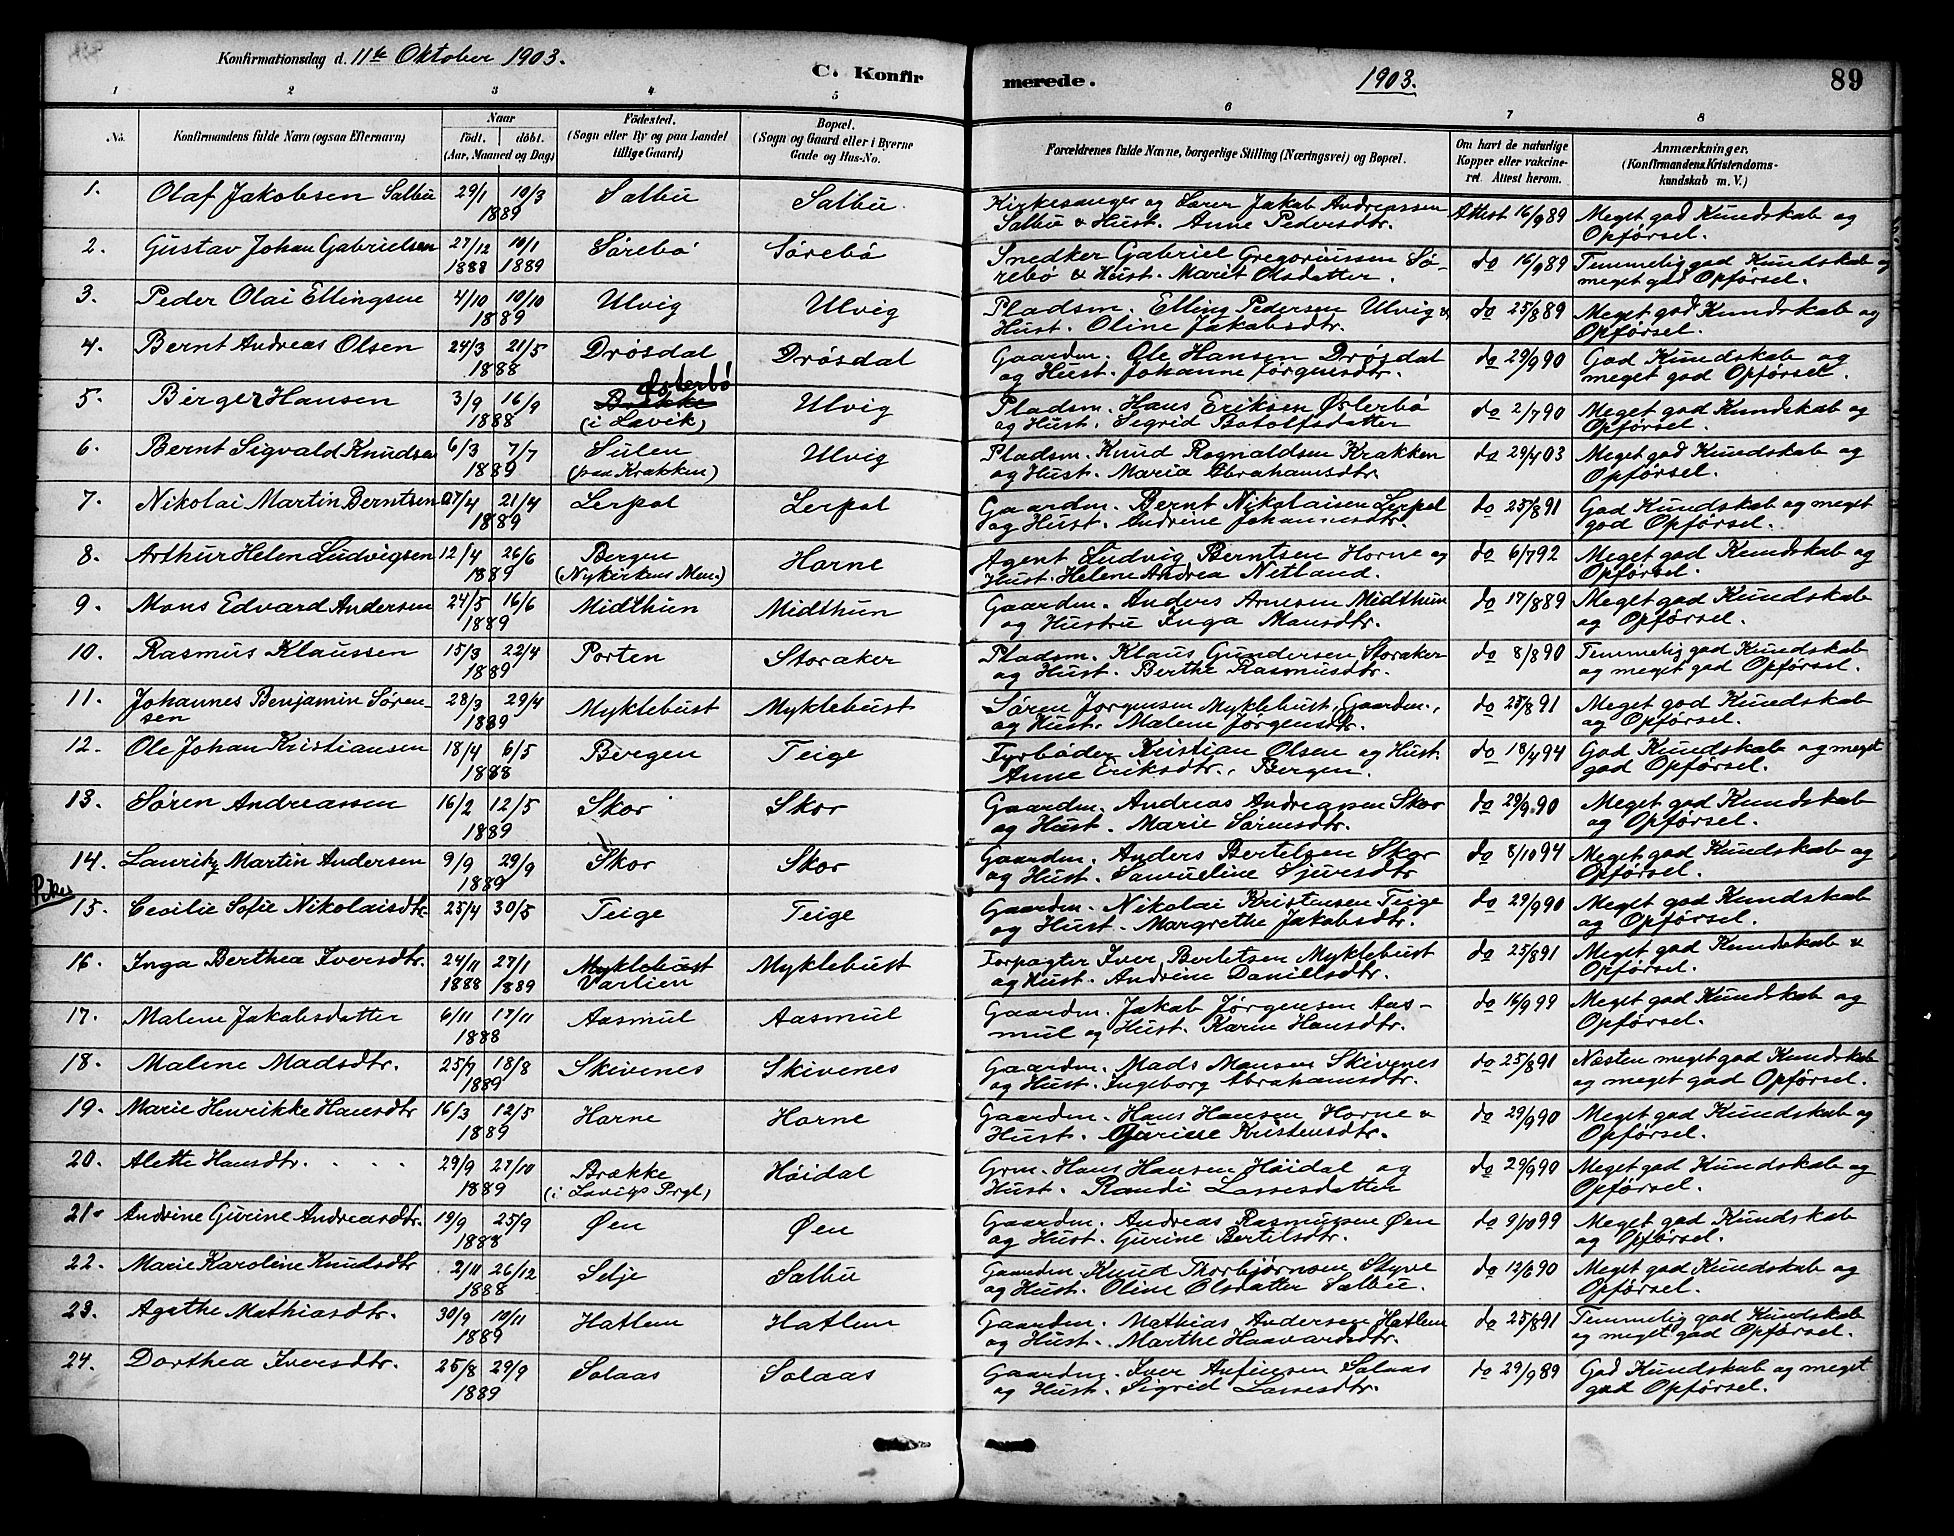 Konfirmationsdag d. 11te Oktober 1903.
C. Konfirmerede.
1903.
89
1 2 3 4 5 6 7 8
No.
Konfirmandens fulde Navn (ogsaa Efternavn)
Naar
födt. döbt.
(Aar, Maaned og Dag)
Födested.
(Sogn eller By og paa Landet
tillige Gaard)
Bopæl.
(Sogn og Gaard eller i Byerne
Gade og Hus-No.
Forældrenes fulde Navne, borgerlige Stilling (Næringsvei) og Bopæl.
Om havt de naturlige
Kopper eller vakcine-
ret. Attest herom.
Anmærkninger.
(Konfirmandens Kristendoms-
kundskab m. V.)
1. Olaf Jakobsen Salbu 29/1 10/3 Salbu Salbu. Kirkesanger og Lærer Jakob Andreassen Attest 16/9 89 Meget god Kundskab og
1889 Salbu & Hust. Anne Pedersdtr. Opførsel.
2. Gustav Johan Gabrielsen 27/12 10/1 Sørebø Sørebø Snedker Gabriel Gregoriussen Sø- do 16/9 89 Temmelig god Kundskab og
1888 1889 rebö & Hust. Marit Olsdatter. meget god Opførsel.
3. Peder Olai Ellingsen 4/10 10/10 Ulvig Ulvig Pladsm. Elling Pedersen Ulvig & do 25/8 89 Meget god Kundskab og
1889 Hust. Oline Jakobsdtr. Opførsel.
4. Bernt Andreas Olsen 24/3 21/5 Drösdal Drösdal Gaardm. Ole Hansen Drösdal do 29/9 90 God Kundskab og
1888 og Hust. Johanne Jørgensdtr. meget god Opførsel.
5. Birger Hansen 3/9 16/9 Østerbö Ulvig Pladsm. Hans Eriksen Østerbö do 2/7 90 Meget god Kundskab og
1888 (i Lavik) og Hust. Sigrid Botolfsdatter Opførsel.
6. Bernt Sigvald Knudsen 6/3 7/7 Sulen Ulvig Pladsm. Knud Rognaldsen Krakken do 29/4 03 Meget god Kundskab og
1889 (paa Krakken) og Hust. Maria Abrahamsdtr. Opførsel.
7. Nikolai Martin Berntsen 17/4 21/4 Lerpol Lerpol Gaardm. Bernt Nikolaisen Lerpol do 25/8 91 God Kundskab og meget
1889 og Hust. Andrine Johannesdtr. god Opførsel.
8. Arthur Helen Ludvigsen 12/4 26/6 Bergen Horne Agent Ludvig Berntsen Horne og do 6/7 92 Meget god Kundskab og
1889 (Nykirkens Men.) Hust. Helene Andrea Netland. Opførsel.
9. Mons Edvard Andersen 24/5 16/6 Midthun Midthun Gaardm. Anders Arnesen Midthun do 17/8 89 Meget god Kundskab
1889 og Hustru Inga Monsdtr. og Opførsel.
10. Rasmus Klaussen 15/3 22/4 Porten Storaker Pladsm. Klaus Gundersen Storaker do 8/8 90 Temmelig god Kundskab
1889 og Hust. Berthe Rasmusdtr. og meget god Opførsel.
11. Johannes Benjamin Søren 28/3 29/4 Myklebust Myklebust Søren Jørgensen Myklebust, Gaardm., do 25/8 91 Meget god Kundskab
sen 1889 og Hust. Malene Jørgensdtr. og Opførsel.
12. Ole Johan Kristiansen 18/4 6/5 Bergen Teige Fyrbøder Kristian Olsen og Hust. do 18/4 94 God Kundskab og meget
1888 Anne Eriksdtr., Bergen. god Opførsel.
13. Søren Andreassen 16/2 12/5 Skor Skor Gaardm. Andreas Andreassen Skor do 29/9 90 Meget god Kundskab
1889 og Hust. Marie Sørensdtr. og Opførsel.
14. Lauritz Martin Andersen 9/9 29/9 Skor Skor Gaardm. Anders Bertelsen Skor do 8/10 94 Meget god Kundskab og
1889 og Hust. Samueline Sjursdtr Opførsel.
15. Cecilie Sofie Nikolaisdtr. 25/4 30/5 Teige Teige Gaardm. Nikolai Kristensen Teige do 29/9 90 Meget god Kundskab
og Hust. Margrethe Jakobsdtr. og Opførsel.
16. Inga Berthea Iversdtr. 24/11 27/1 Myklebust Myklebust Forpagter Iver Bertelsen Myklebust do 25/8 91 Meget god Kundskab &
1888 1889 Varlien og Hust. Andrine Danielsdtr. Opførsel.
17. Malene Jakobsdatter 6/11 17/11 Aasmul Aasmul Gaardm. Jakob Jørgensen Aas- do 16/9 99 Meget god Kundskab og
1888 mul og Hust. Karin Hansdtr. Opførsel.
18. Malene Madsdtr. 25/7 18/8 Skivenes Skivenes Gaardm. Mads Monsen Skivenes do 25/8 91 Næsten meget god Kundskab
1889 og Hust. Ingeborg Abrahamsdtr. og meget god Opførsel.
19. Marie Henrikke Hansdtr 16/3 12/5 Horne Horne Gaardm. Hans Hansen Horne & do 29/9 90 Meget god Kundskab og
1889 Hust. Gurine Kristensdtr. Opførsel.
20. Alette Hansdtr. 29/9 27/10 Brække Höidal Grm. Hans Hansen Höidal og do 29/9 90 Meget god Kundskab og
1889 (i Lavigs Prgl) Hust. Randi Lassesdatter Opførsel.
21. Andrine Gurine Andreasdtr. 19/9 25/9 Øen Øen Gaardm. Andreas Rasmussen Øen do 9/10 99 Meget god Kundskab
1888 og Hust. Gurine Bertilsdtr. og Opførsel.
22. Marie Karoline Knudsdtr 2/11 26/12 Selje Salbu Gaardm. Knud Thorbjørnsen Styve do 12/6 90 Meget god Kundskab og
1888 og Hust. Oline Olsdatter Salbu. Opførsel.
23. Agathe Mathiasdtr. 30/9 10/11 Hatlem Hatlem Gaardm. Mathias Andersen Hatlem do 25/8 91 Temmelig god Kundskab
1889 og Hust. Marthe Haavardsdtr. og meget god Opførsel.
24. Dorthea Iversdtr. 25/8 29/9 Solaas Solaas Gaardm. Iver Anfinsen Solaas do 29/9 89 God Kundskab og meget
1889 og Hust. Sigrid Lassesdtr. god Opførsel.